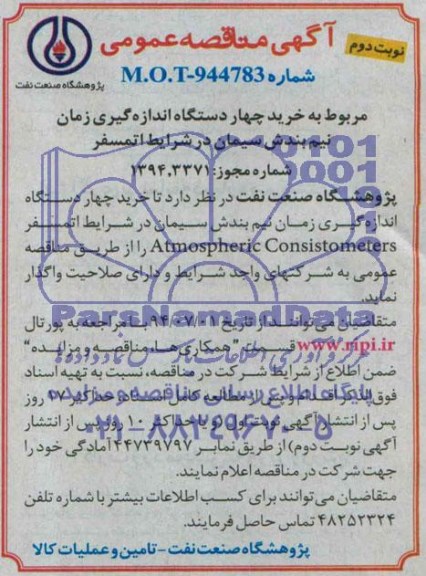 آگهی مناقصه عمومی
نوبت دوم
پژوهشگاه صنعت نفت
شماره M.O.T-944783
مربوط به خرید چهار دستگاه اندازه گیری زمان
نیم بندش سیمان در شرایط اتمسفر
شماره مجوز: ۱۳۹۴.۳۳۷۱
پژوهشگاه صنعت نفت در نظر دارد تا خرید چهار دستگاه
اندازه گیری زمان نیم بندش سیمان در شرایط اتمسفر
Atmospheric Consistometers را از طریق مناقصه
عمومی به شرکتهای واجد شرایط و دارای صلاحیت واگذار
نماید.
متقاضیان می توانند از تاریخ ۹۴/۰۷/۰۱ با مراجعه به پورتال
www.ripi.ir قسمت "همکاری ها، مناقصه و مزایده"
ضمن اطلاع از شرایط شرکت در مناقصه، نسبت به تهیه اسناد
فوق الذکر اقدام و پس از مطالعه کامل اسناد و حداکثر ۱۷ روز
پس از انتشار آگهی نوبت اول (و یا حداکثر ۱۰ روز پس از انتشار
آگهی نوبت دوم) از طریق نمابر ۴۴۷۳۹۷۹۷ آمادگی خود را
جهت شرکت در مناقصه اعلام نمایند.
متقاضیان می توانند برای کسب اطلاعات بیشتر با شماره تلفن
۴۸۲۵۲۳۲۴ تماس حاصل فرمایند.
پژوهشگاه صنعت نفت - تامین و عملیات کالا
ParsNamadData
۰۲۱-۸۸۳۴۹۶۷۰-۵